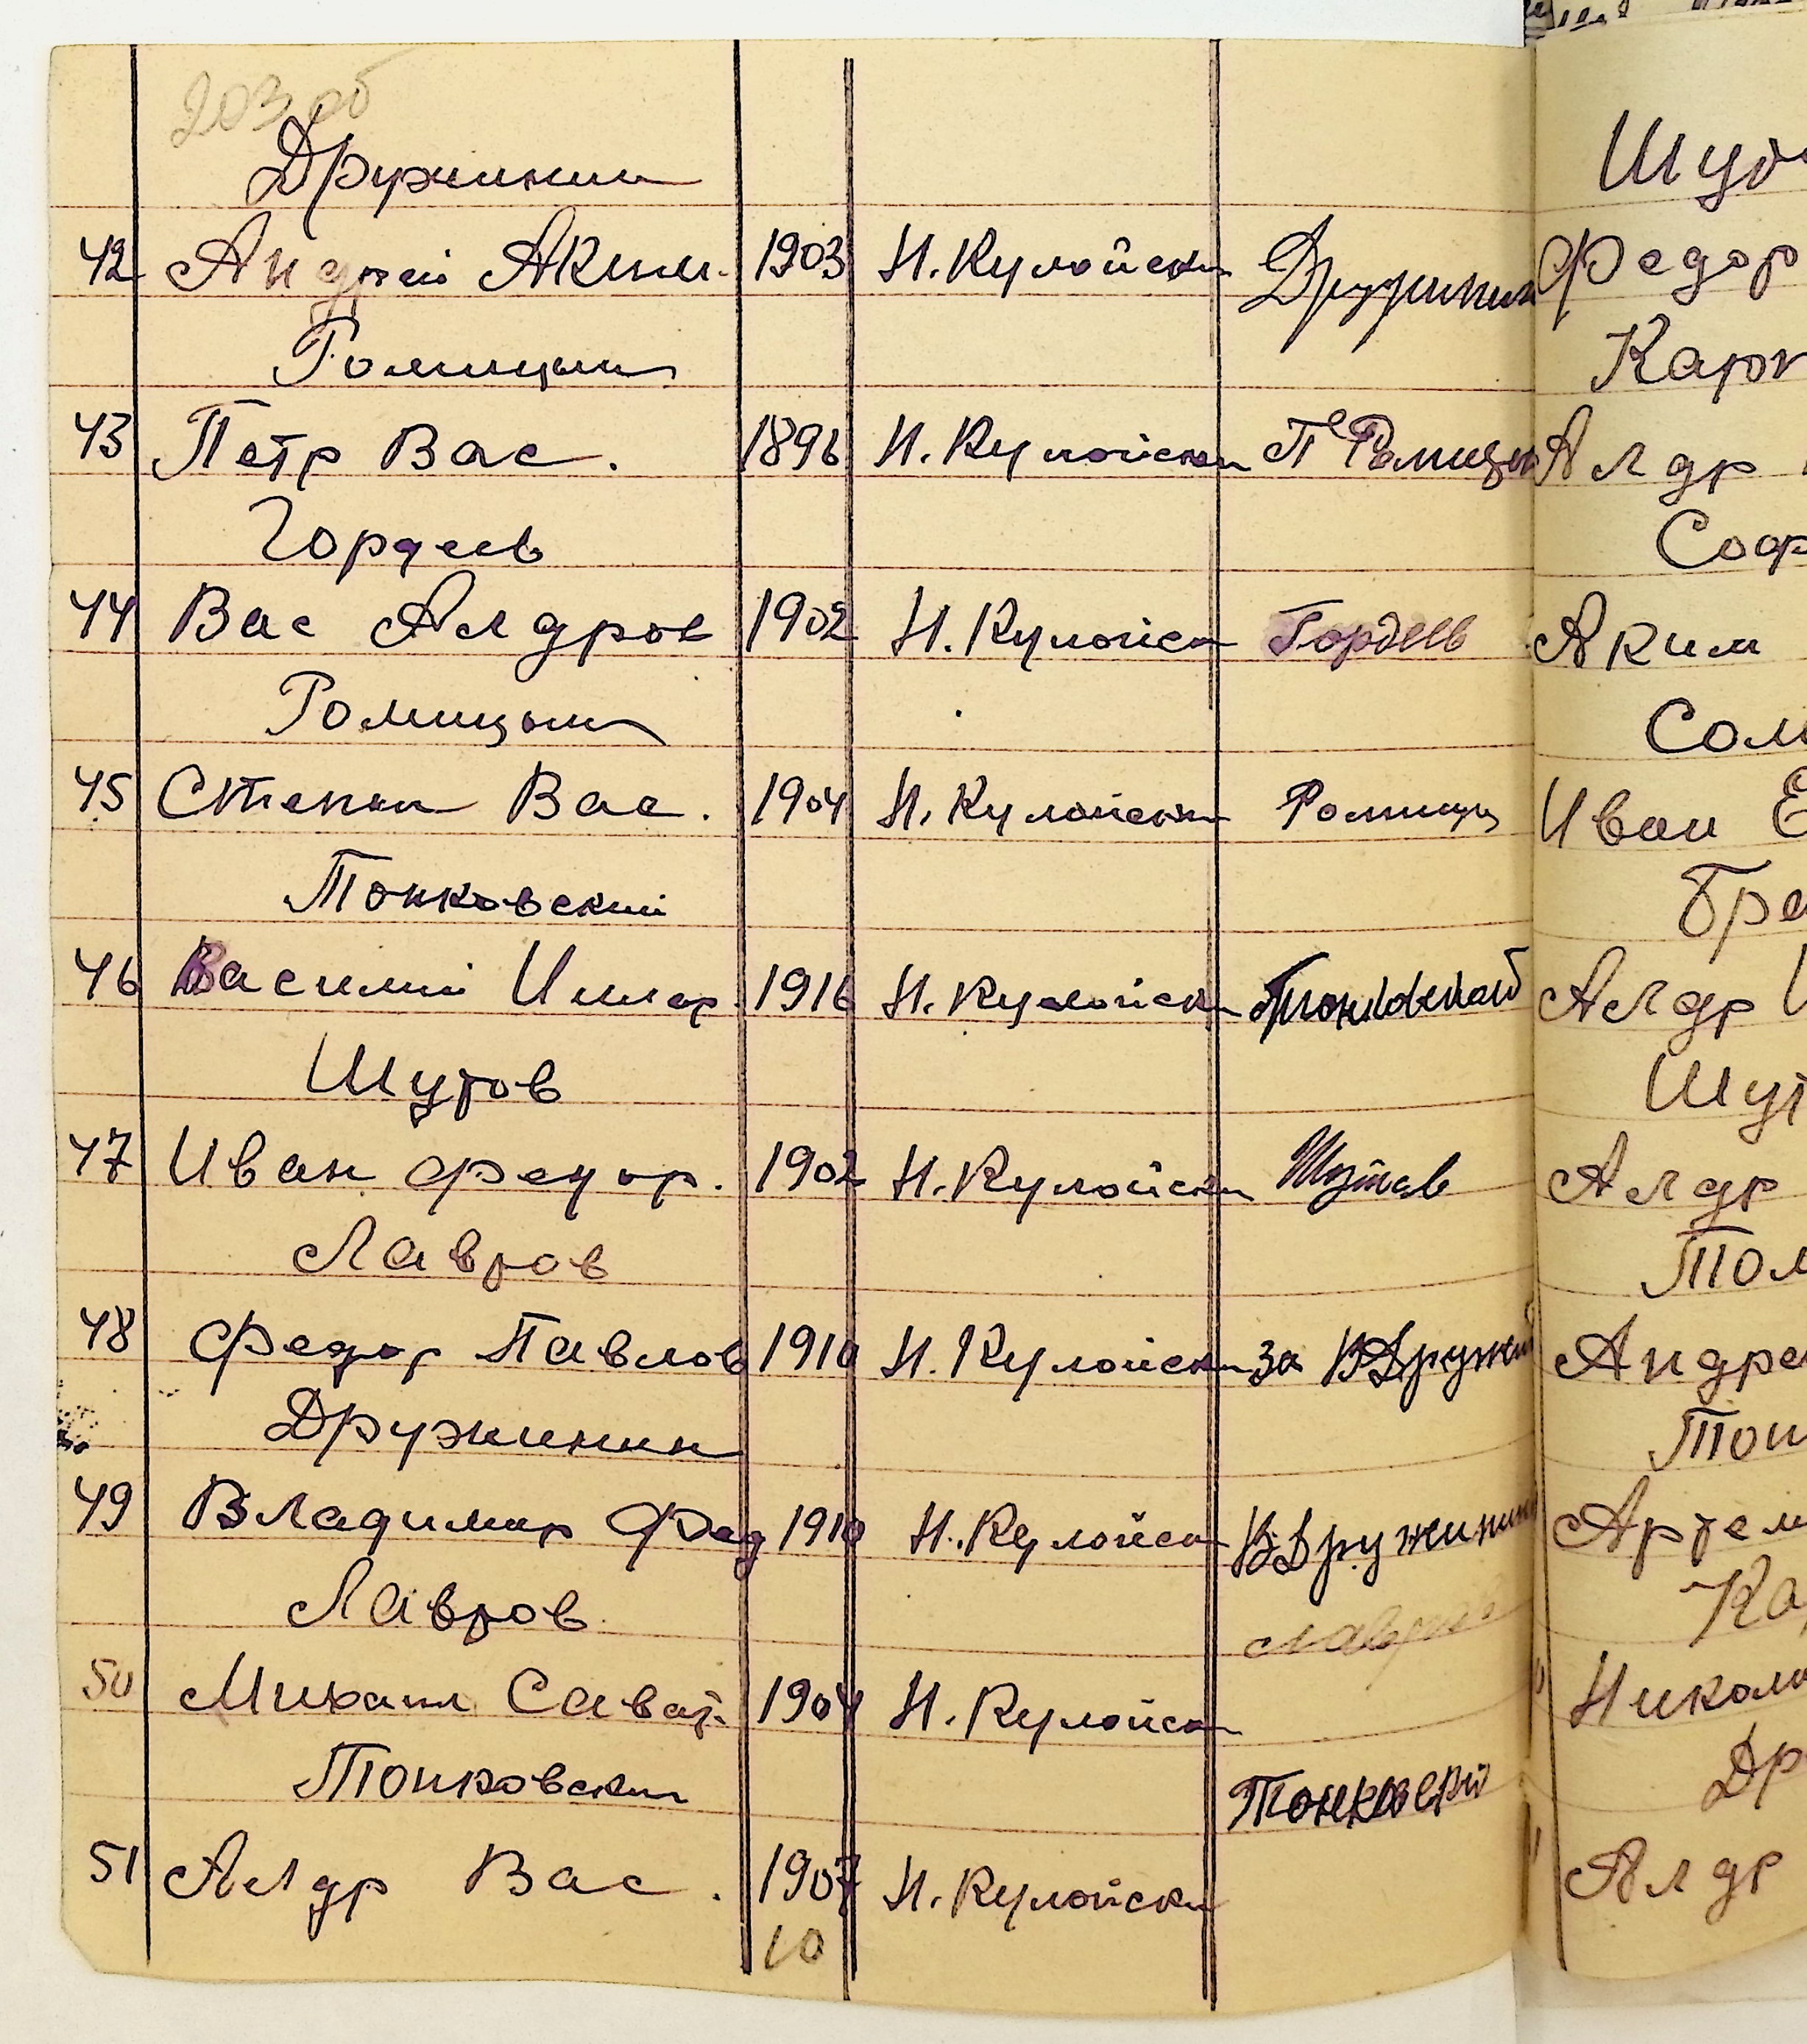 203 об
Дружинин
42 Андрей Аким. 1903 Н. Кулойски Дружинин
Ромицын
43 Петр Вас. 1896 Н. Кулойски П Ромицын
Гордеев
44 Вас Алдров 1902 Н. Кулойск Гордеев
Ромицын
45 Степан Вас. 1904 Н. Кулойски Ромицы
Тонковский
46 Василий 1916 Н. Кулойски
Шутов
47 Иван Федор. 1902 Н. Кулойски Шутов
Лавров
48 Федор Павлов 1910 Н. Кулойски за ВДружин
Дружинин
49 Владимир Фед 1910 Н. Кулойск ВДружинин
Лавров Лавров
50 Михаил Сават. 1904 Н. Кулойск
Тонковский Тонковский
51 Алдр Вас. 1907 Н. Кулойски
10
Шут
Федор
Карп
Алдр
Соф
Аким
Сол
Иван Е
Бра
Алдр
Шут
Алдр
Тол
Андре
Тон
Артем
Ка
Никола
Др
Алдр